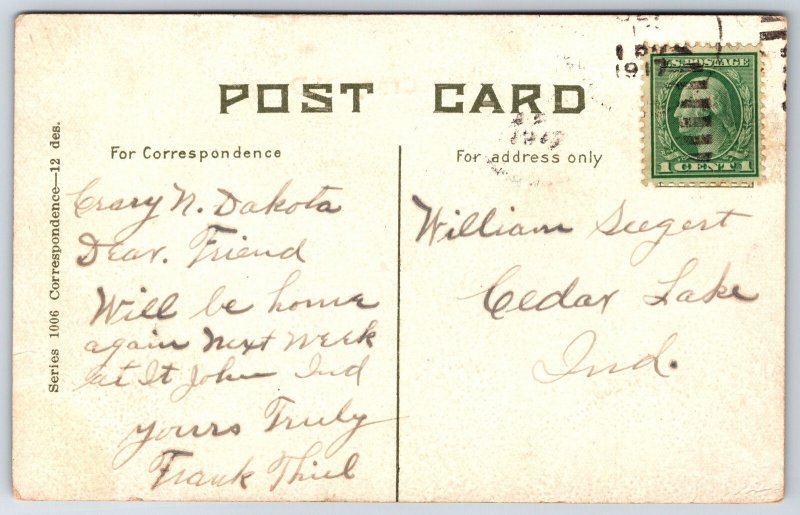 POST CARD
For Correspondence
For address only
1917
1917
U.S. POSTAGE
1 CENT 1
Series 1006 Correspondence—12 des.
Crary N. Dakota
Dear. Friend
Will be home
again Next Week
at St John Ind
Yours Truly
Frank Thiel
William Seegert
Cedar Lake
Ind.